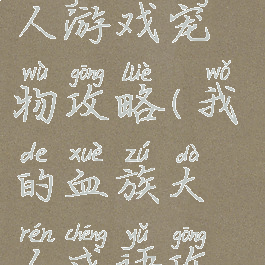 人游戏宠
wù gōng lüè wǒ
物攻略(我
de xuè zú dà
的血族大
rén chéng yǔ gōng